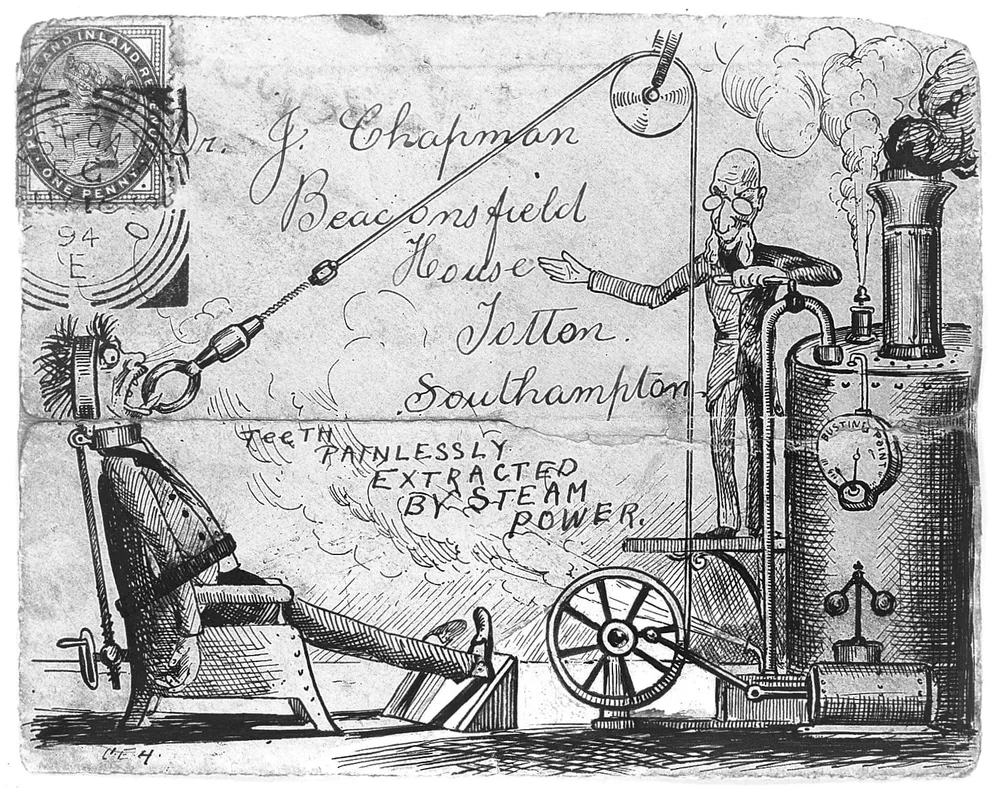 POSTAGE AND INLAND REVENUE
ONE PENNY
94
E
Dr. J. Chapman
Beaconsfield
House
Totton.
Southampton.
TEETH
PAINLESSLY
EXTRACTED
BY STEAM
POWER.
BUSTING POINT
C.E.H.